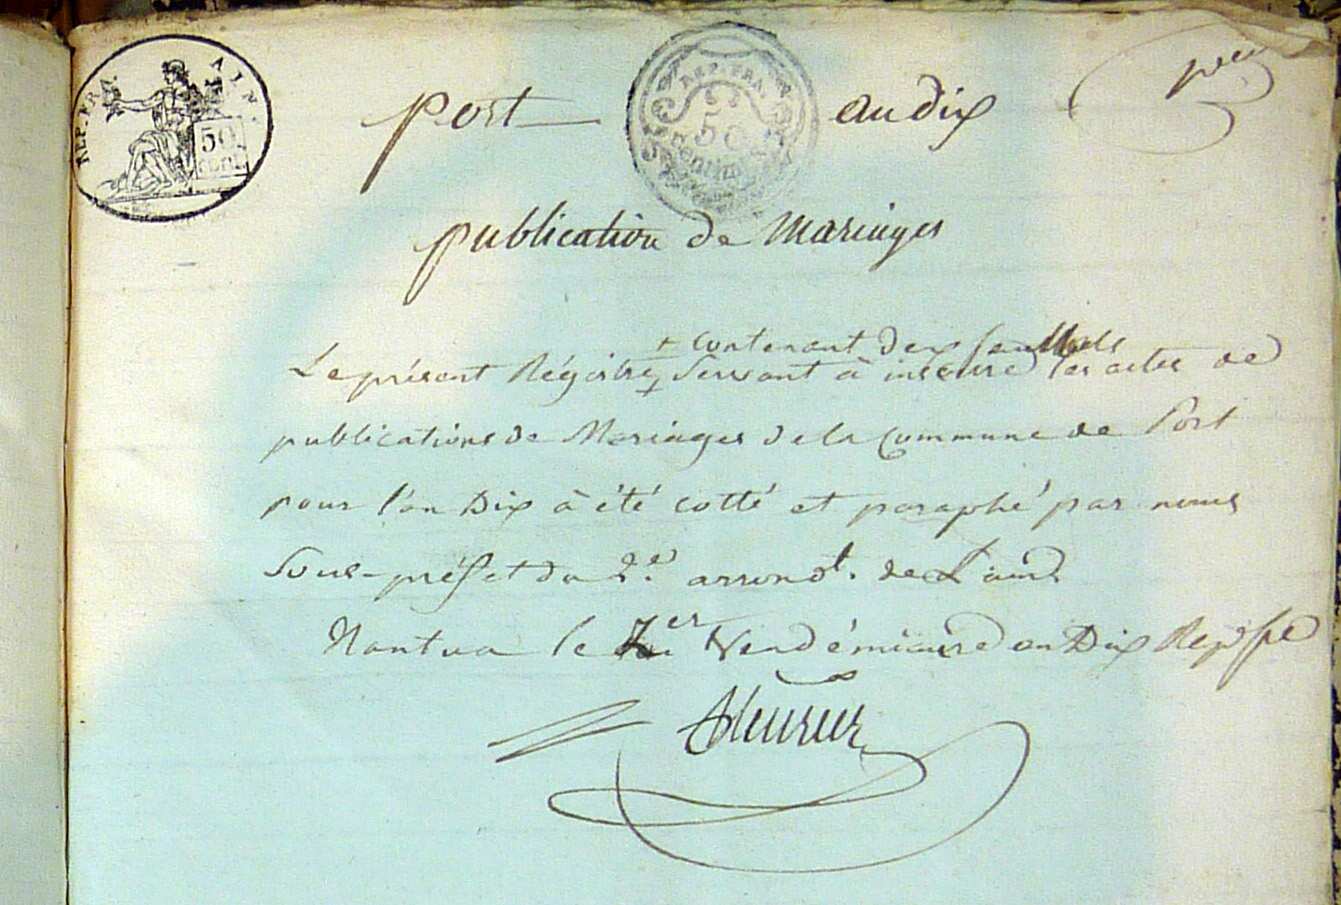 REP. FR. AIN
50
CENT.
REP. FRA.
50
Centimes
port an dix
publication de Mariages
+ Contenant deux feuillets
Le présent Régistre + Servant à inscrire les actes de
publications de Mariages de la Commune de Port
pour l'an Dix à été cotté et paraphé par nous
Sous-préfet du 2.e arrondt. de L'ain.
Nantua le 1er Vendémiaire an Dix